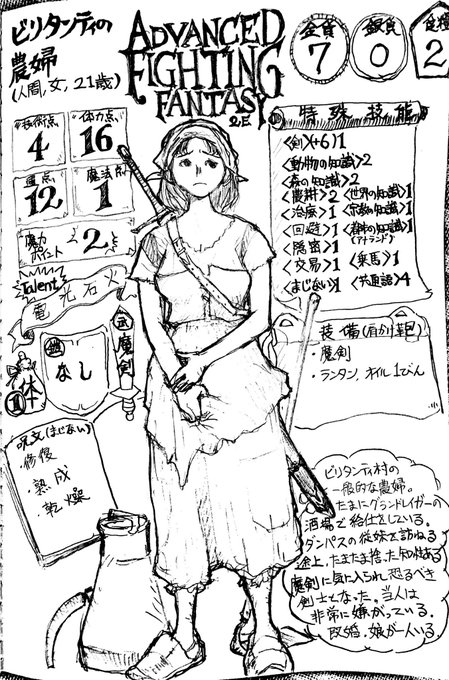 ビリタンティの
農婦
(人間,女,21歳)
ADVANCED
FIGHTING
FANTASY
2E
金貨
7
銀貨
0
食糧
2
技術点
4
体力点
16
運点
12
魔法点
1
魔力
ポイント
2点
Talent
電光石火
鎧
なし
武
魔剣
盾
体
特殊技能
〈剣〉(+6)1
〈動物の知識〉2
〈森の知識〉2
〈農耕〉2 〈世界の知識〉1
〈治療〉1 〈宗教の知識〉1
〈回避〉1 〈都市の知識〉1
(アランド)
〈隠密〉1
〈交易〉1 〈乗馬〉1
〈まじない〉1 〈共通語〉4
装備(肩かけ鞄)
・魔剣
・ランタン、オイル1びん
呪文(まじない)
・修復
・熟成
乾燥
ビリタンティ村の
一般的な農婦。
たまにグランドレイガーの
酒場で給仕をしている。
ダンパスの従妹を訪ねる
途上、たまたま拾った知性ある
魔剣に気に入られ恐るべき
剣士となった。当人は
非常に嫌がっている。
既婚、娘が一人いる。